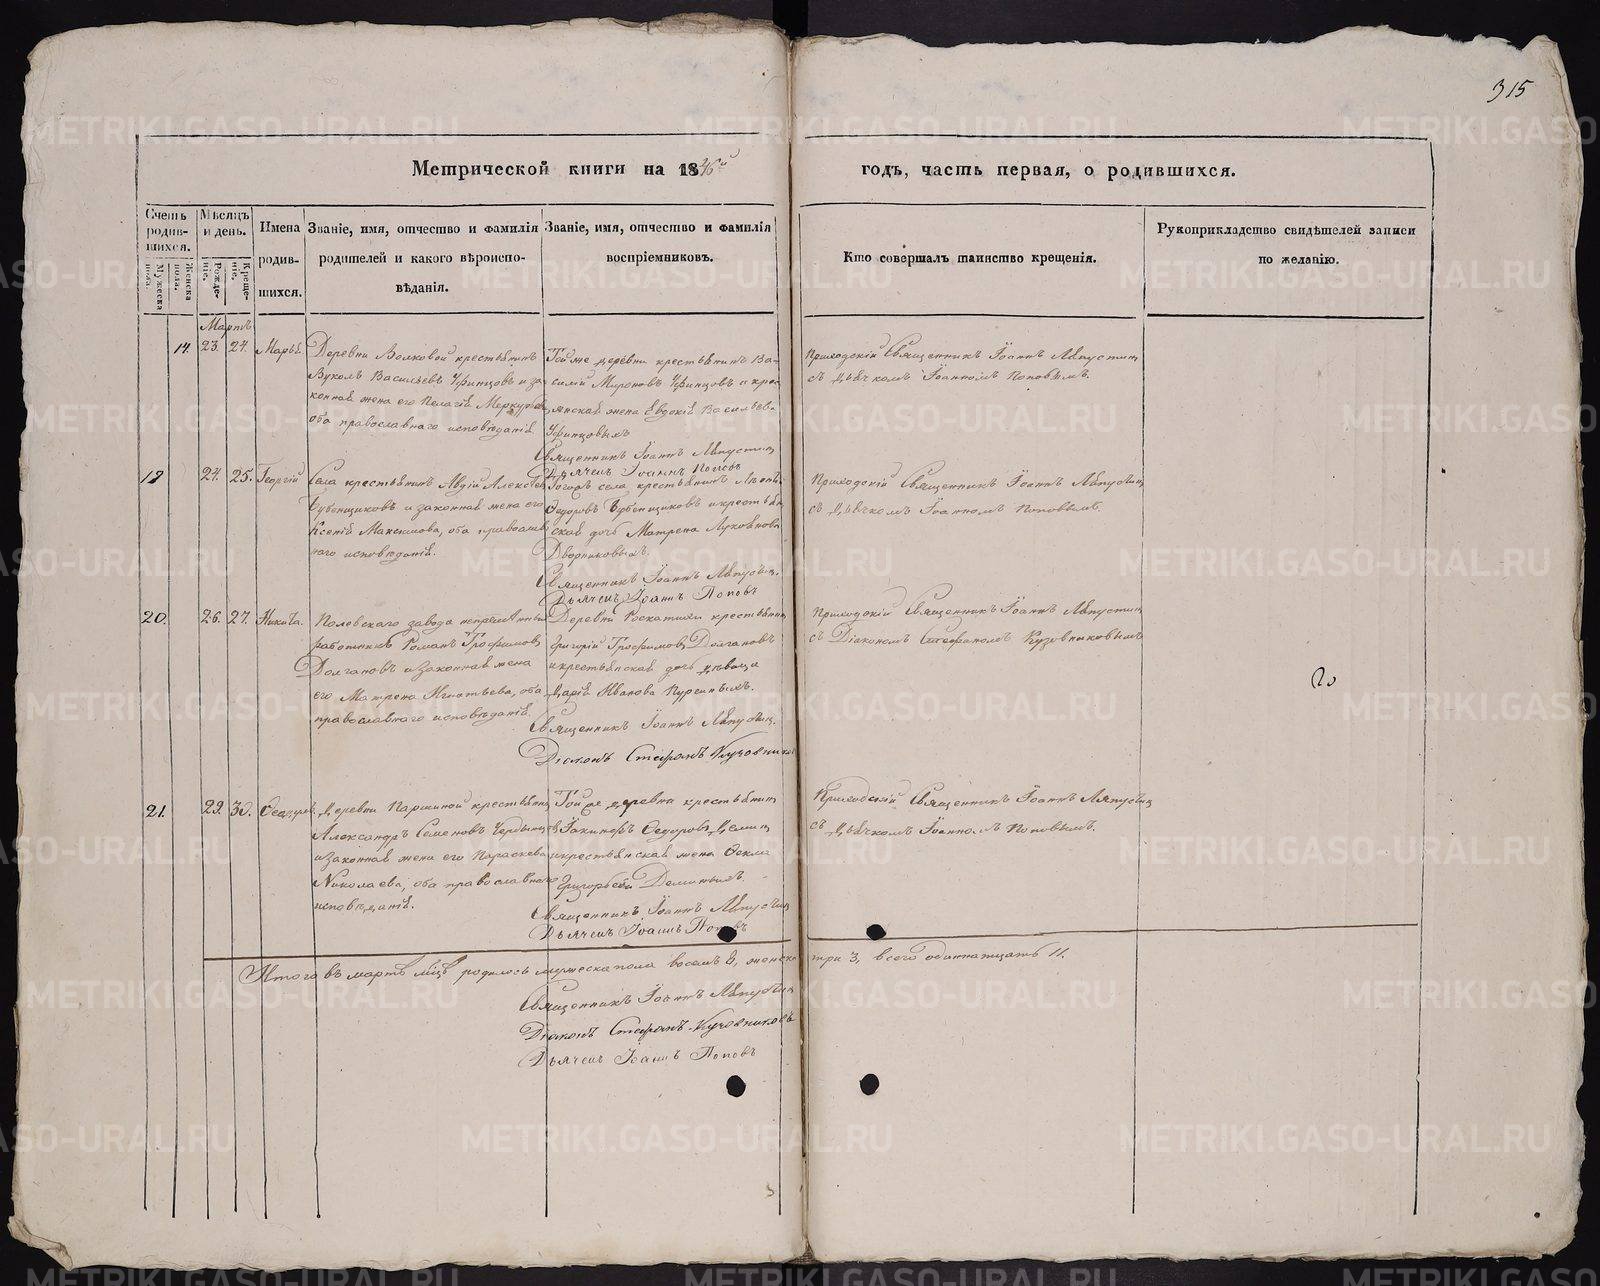 315
Метрической книги на 1846й годъ, часть первая, о родившихся.
Счетъ родившихся.
Мужеска пола.
Женска пола.
Мѣсяцъ и день.
Рожденіе.
Крещеніе.
Имена родившихся.
Званіе, имя, отчество и фамилія родителей и какого вѣроисповѣданія.
Званіе, имя, отчество и фамилія воспріемниковъ.
Кто совершалъ таинство крещенія.
Рукоприкладство свидѣтелей записи по желанію.
Мартъ
14. 23. 24. Марья
Деревни Волковой крестьянинъ
Вуколъ Васильевъ Уфинцовъ и за-
конная жена его Пелагія Меркурьева
оба православнаго исповѣданія.
Той же деревни крестьянинъ Ва-
силій Мироновъ Уфинцовъ и крес-
янская жена Евдокія Васильева
Уфинцовыхъ
Священникъ Іоаннъ Ляпустин
Дьячецъ Іоаннъ Поповъ
Приходскій Священникъ Іоаннъ Ляпустин
съ Дьячкомъ Іоанномъ Поповымъ.
19 24. 25. Георгій
Села крестьянинъ Авдій Алексѣев
Бубенщиковъ и законная жена его
Ксенія Максимова, оба православ
наго исповѣданія.
Тогожъ села крестьянинъ
Ѳедоровъ Бубенщиковъ и крестьян
ская дочь Матрена Луковнова
Дворниковыхъ.
Священникъ Іоаннъ Ляпустин.
Дьячецъ Іоаннъ Поповъ
Приходскій Священникъ Іоаннъ Ляпустин
съ Дьячкомъ Іоанномъ Поповымъ.
20. 26. 27. Никита.
Полевскаго завода непремѣнный
работникъ Романъ Трофимовъ
Долгановъ и законная жена
его Матрена Игнатьева, оба
православнаго исповѣданія
Деревни Роскатихи крестьянинъ
Григорій Трофимовъ Долгановъ
и крестьянская дочь дѣвица
Дарія Иванова Пургиныхъ.
Священникъ Іоаннъ Ляпустин.
Діаконъ Стефанъ Кузовников
Приходскій Священникъ Іоаннъ Ляпустин
съ Діакономъ Стефаномъ Кузовниковымъ
21. 29. 30.
Деревни Паршиной крестьянин
Александръ Семеновъ
и законная жена его Параскева
Николаева, оба православнаго
исповѣданія.
Той же деревни крестьянин
Іакинфъ Ѳедоровъ Деминъ
и крестьянская жена Ѳекла
Григорьева
Священникъ Іоаннъ Ляпустин
Дьячецъ Іоаннъ Поповъ
Приходскій Священникъ Іоаннъ Ляпустин
съ Дьячкомъ Іоанномъ Поповымъ.
Итого въ мартѣ мцѣ родилось мужеска пола восемь 8, женска три 3, всего одиннатцать 11.
Священникъ Іоаннъ Ляпустин
Діаконъ Стефанъ Кузовниковъ
Дьячецъ Іоаннъ Поповъ
METRIKI.GASO-URAL.RU